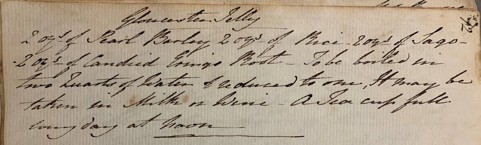 Gloucester Jelly
2 ozs. of Pearl Barley 2 ozs. of Rice 2 ozs. of Sago -
2 ozs. of Candied Eringo Root - To be boiled in
two Quarts of Water & reduced to one, It may be
taken in Milk or Wine - A Tea cup full
every day at Noon